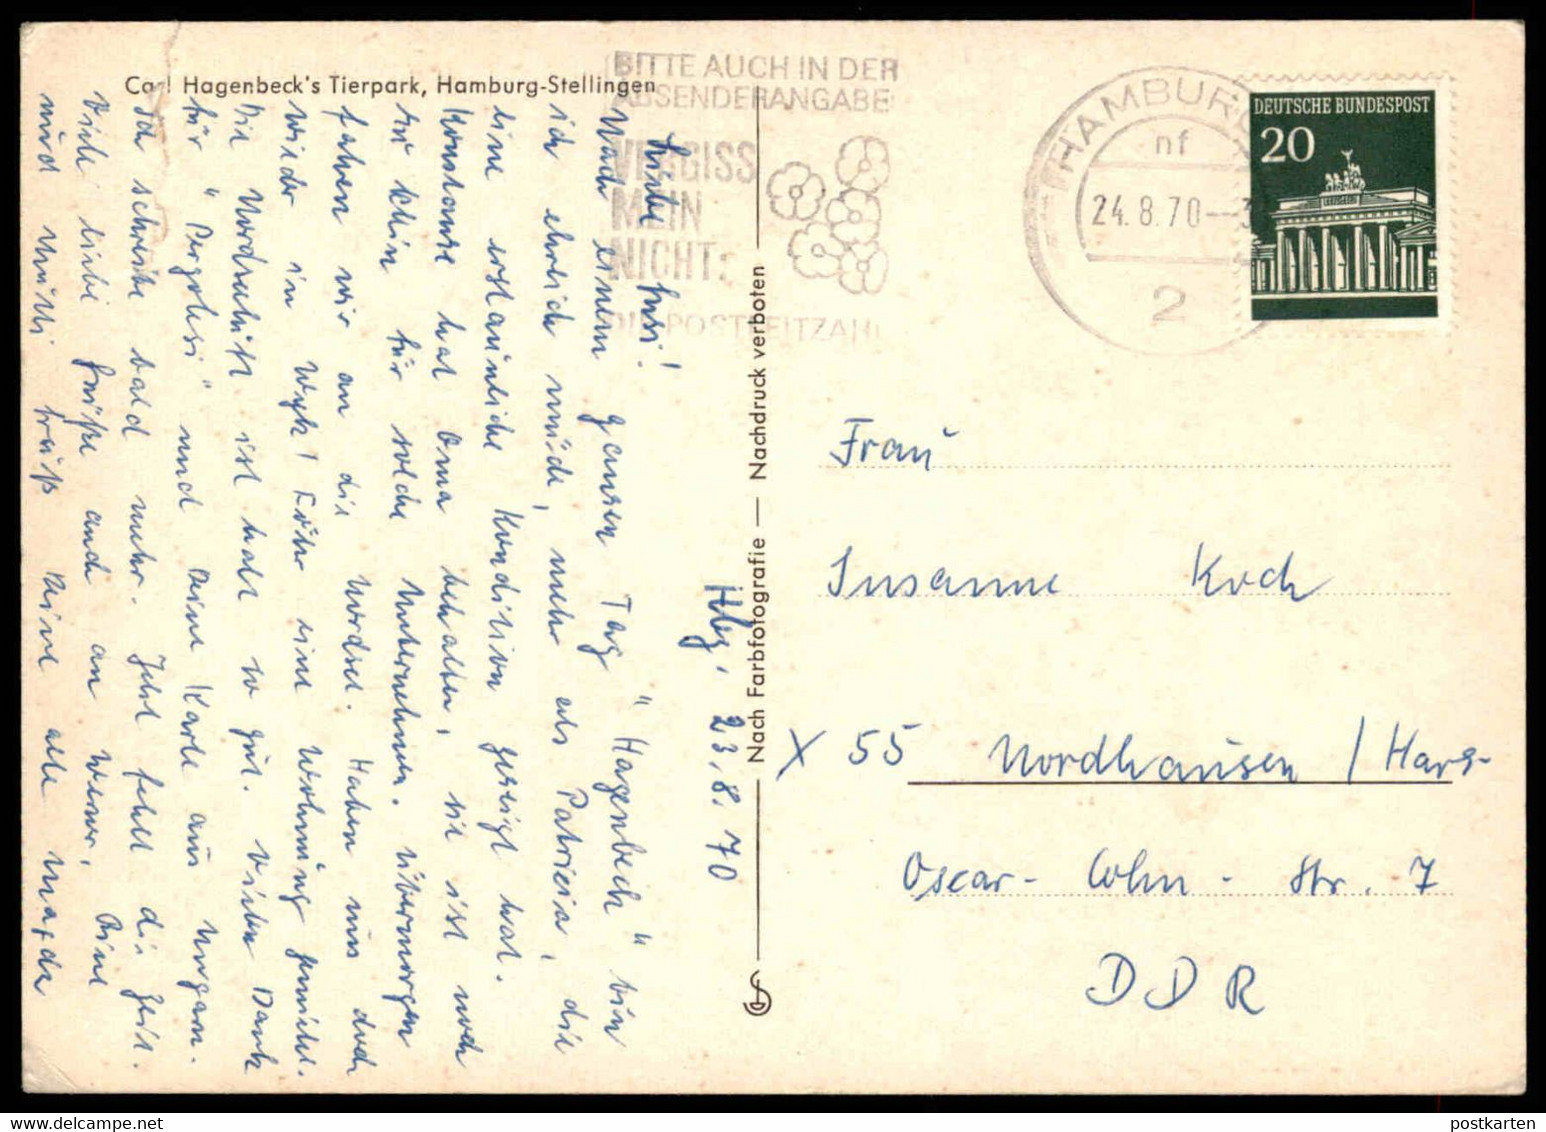 Carl Hagenbeck's Tierpark, Hamburg-Stellingen
BITTE AUCH IN DER
ABSENDERANGABE
VERGISS
MEIN
NICHT:
DIE POSTLEITZAHL
HAMBURG
nf
24.8.70
2
DEUTSCHE BUNDESPOST
20
Hbg, 23.8.70
Liebe Susi!
Nach einem ganzen Tag "Hagenbeck" bin
ich ehrlich müde, mehr als Patricia, die
eine erstaunliche Kondition gezeigt hat.
Konstanze hat Oma behalten, sie ist noch
zu klein für solche Unternehmen. Übermorgen
fahren wir an die Nordsee. Haben uns doch
wieder in Wyk / Föhr eine Wohnung gemietet.
Die Nordseeluft ist halt so gut. Vielen Dank
für "Pergolesi" und Deine Karte aus Ungarn.
Ich schreibe bald mehr. Jetzt fehlt die Zeit.
Viele liebe Grüße auch an Werner, Deine
und Mutti grüß Deine alte Magda
Nach Farbfotografie — Nachdruck verboten
Frau
Susanne Koch
X 55 Nordhausen / Harz
Oscar-Cohn-Str. 7
DDR
postkarten